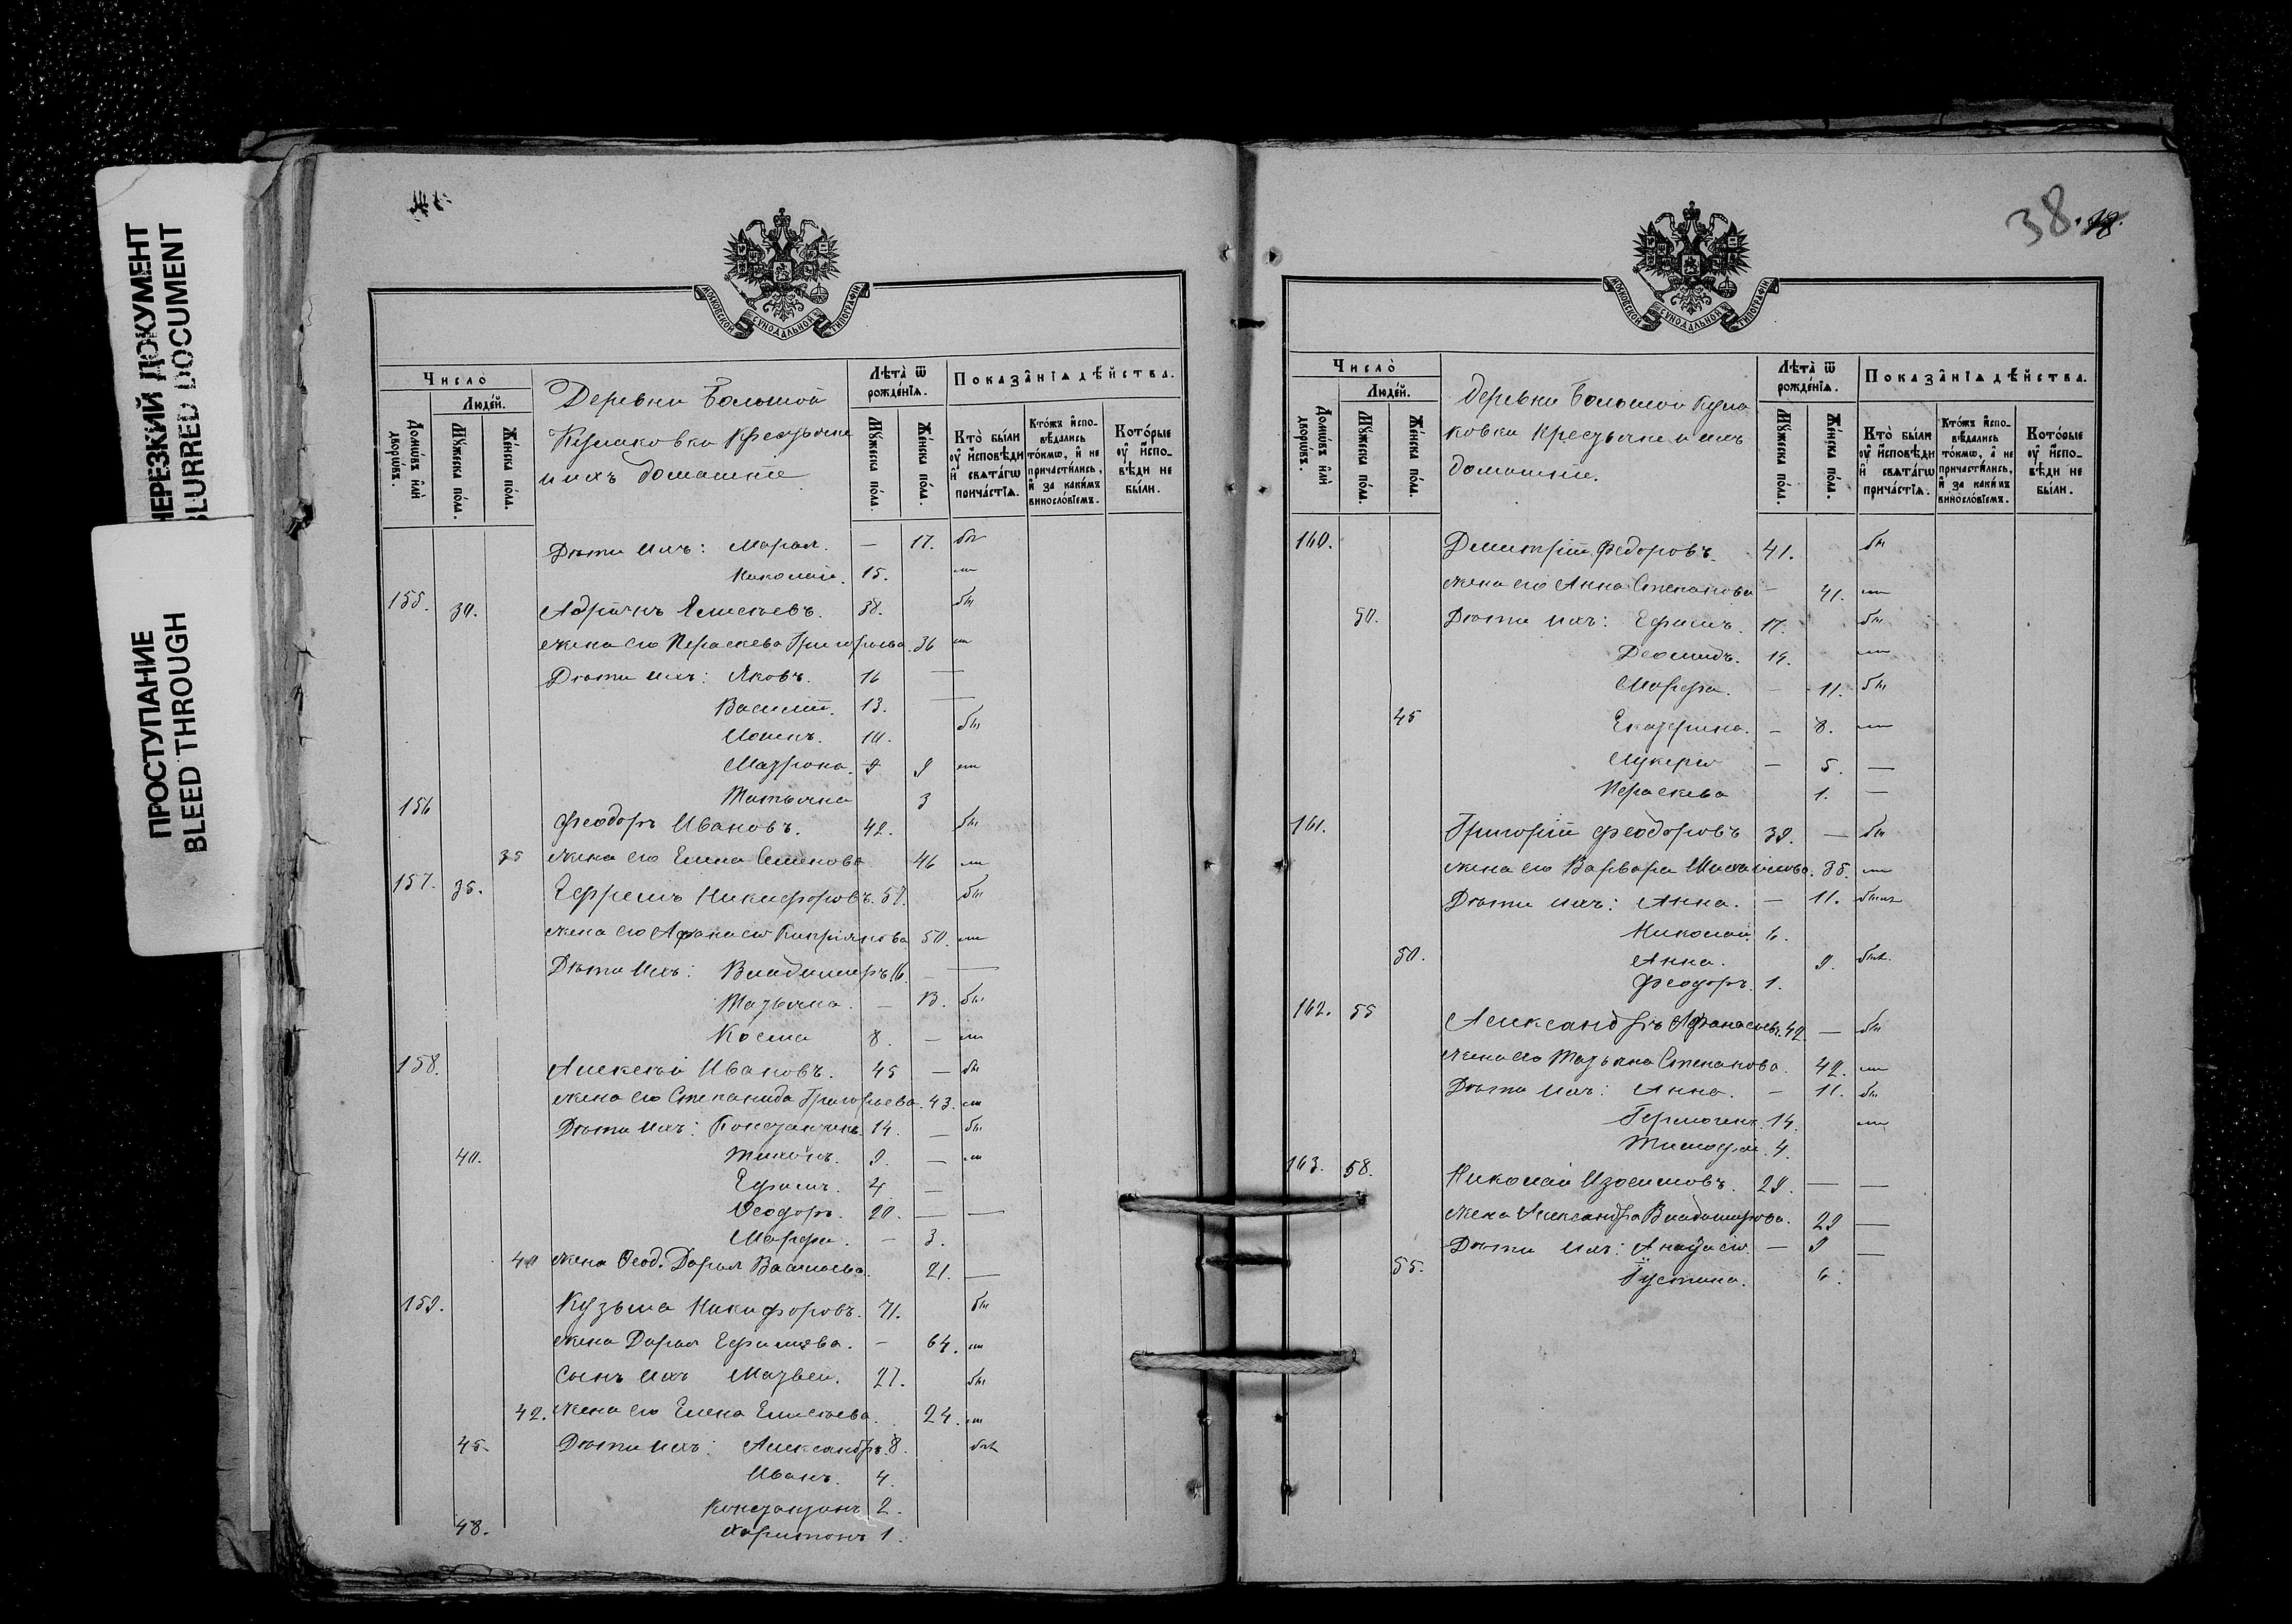 НЕРЕЗКИЙ ДОКУМЕНТ
BLURRED DOCUMENT
ПРОСТУПАНИЕ
BLEED THROUGH
МОСКОВСКОЙ СѴНОДАЛЬНОЙ ТИПОГРАФІИ
Число̀
Людей.
Домѡвъ и҆лѝ дворѡвъ.
Мꙋжеска пола.
Женска пола.
Деревни Большой
Кулаковки Крестьяне
и ихъ домашніе
Лѣта̀ ѿ рожденїѧ.
Мꙋжеска пола.
Женска пола.
Показанїѧ дѣйства.
Кто̀ были ᲂу҆ и҆сповѣди и҆ свѧтагѡ причастїѧ.
Ктожъ и҆сповѣдались токмѡ, и҆ не причастились, и҆ за какимъ винословїемъ.
Которые ᲂу҆ и҆сповѣди не были.
Дѣти ихъ: Марья. — 17. бы
Николай. 15. ли
155. 30. Адріанъ Елисѣевъ. 38. бы
жена его Параскева Григорьева. 36 ли
Дѣти ихъ: Яковъ. 16 —
Василій. 13. —
10. бы
Матрона. 9 ли
Татьяна 3
156 Феодоръ Ивановъ. 42. бы
35 жена его Елена Семенова 46 ли
157. 35. Ефремъ Никифоровъ. 57. бы
жена его Афанасія Кипріянова 50. ли
Дѣти ихъ: Владимиръ 16. — —
Татьяна. — 13. бы
Косма 8. — ли
158. Алексѣй Ивановъ. 45 — бы
жена его Степанида Григорьева. 43. ли
Дѣти ихъ: Константинъ. 14. — бы
40. Тихонъ. 9. — ли
Ефимъ. 4. —
Ѳеодоръ. 20. — —
Марфа. — 3.
40 жена Ѳеод. Дарья Васильева. 21. —
159. Кузьма Никифоровъ. 71. бы
жена Дарья Ефимова. — 64. ли
Сынъ ихъ Матвей. 27. бы
42. жена его Елена Елисѣева. 24. ли
45. Дѣти ихъ: Александръ. 8. был
Иванъ. 4.
Константинъ 2.
48. Харитонъ 1.
38.
МОСКОВСКОЙ СѴНОДАЛЬНОЙ ТИПОГРАФІИ
Число̀
Людей.
Домѡвъ и҆лѝ дворѡвъ.
Мꙋжеска пола.
Женска пола.
Деревни Большой Кула
ковки Крестьяне и ихъ
домашніе.
Лѣта̀ ѿ рожденїѧ.
Мꙋжеска пола.
Женска пола.
Показанїѧ дѣйства.
Кто̀ были ᲂу҆ и҆сповѣди и҆ свѧтагѡ причастїѧ.
Ктожъ и҆сповѣдались токмѡ, и҆ не причастились, и҆ за какимъ винословїемъ.
Которые ᲂу҆ и҆сповѣди не были.
160. Димитрій Федоровъ. 41. бы
жена его Анна Степанова — 41. ли
50. Дѣти ихъ: Ефимъ. 17. бы
Деомидъ. 14. ли
Марфа. — 11. бы
45 Екатерина. — 8. ли
Лукерія — 5. —
Параскева 1. —
161. Григорій Феодоровъ 39. — бы
жена его Варвара Михайлова. 38. ли
Дѣти ихъ: Анна. — 11. были
Николай. 6.
50. Анна. 9. был.
Феодоръ. 1.
162. 55 Александръ Афанасьевъ. 42 — бы
жена его Татьяна Степанова. 42. ли
Дѣти ихъ: Анна. — 11. бы
Гермогенъ. 14. ли
Тимофей. 4.
163. 58. Николай Изосимовъ. 29. — —
жена Александра Владимирова. 29 —
Дѣти ихъ: — 9 —
55. Іустина. 6.